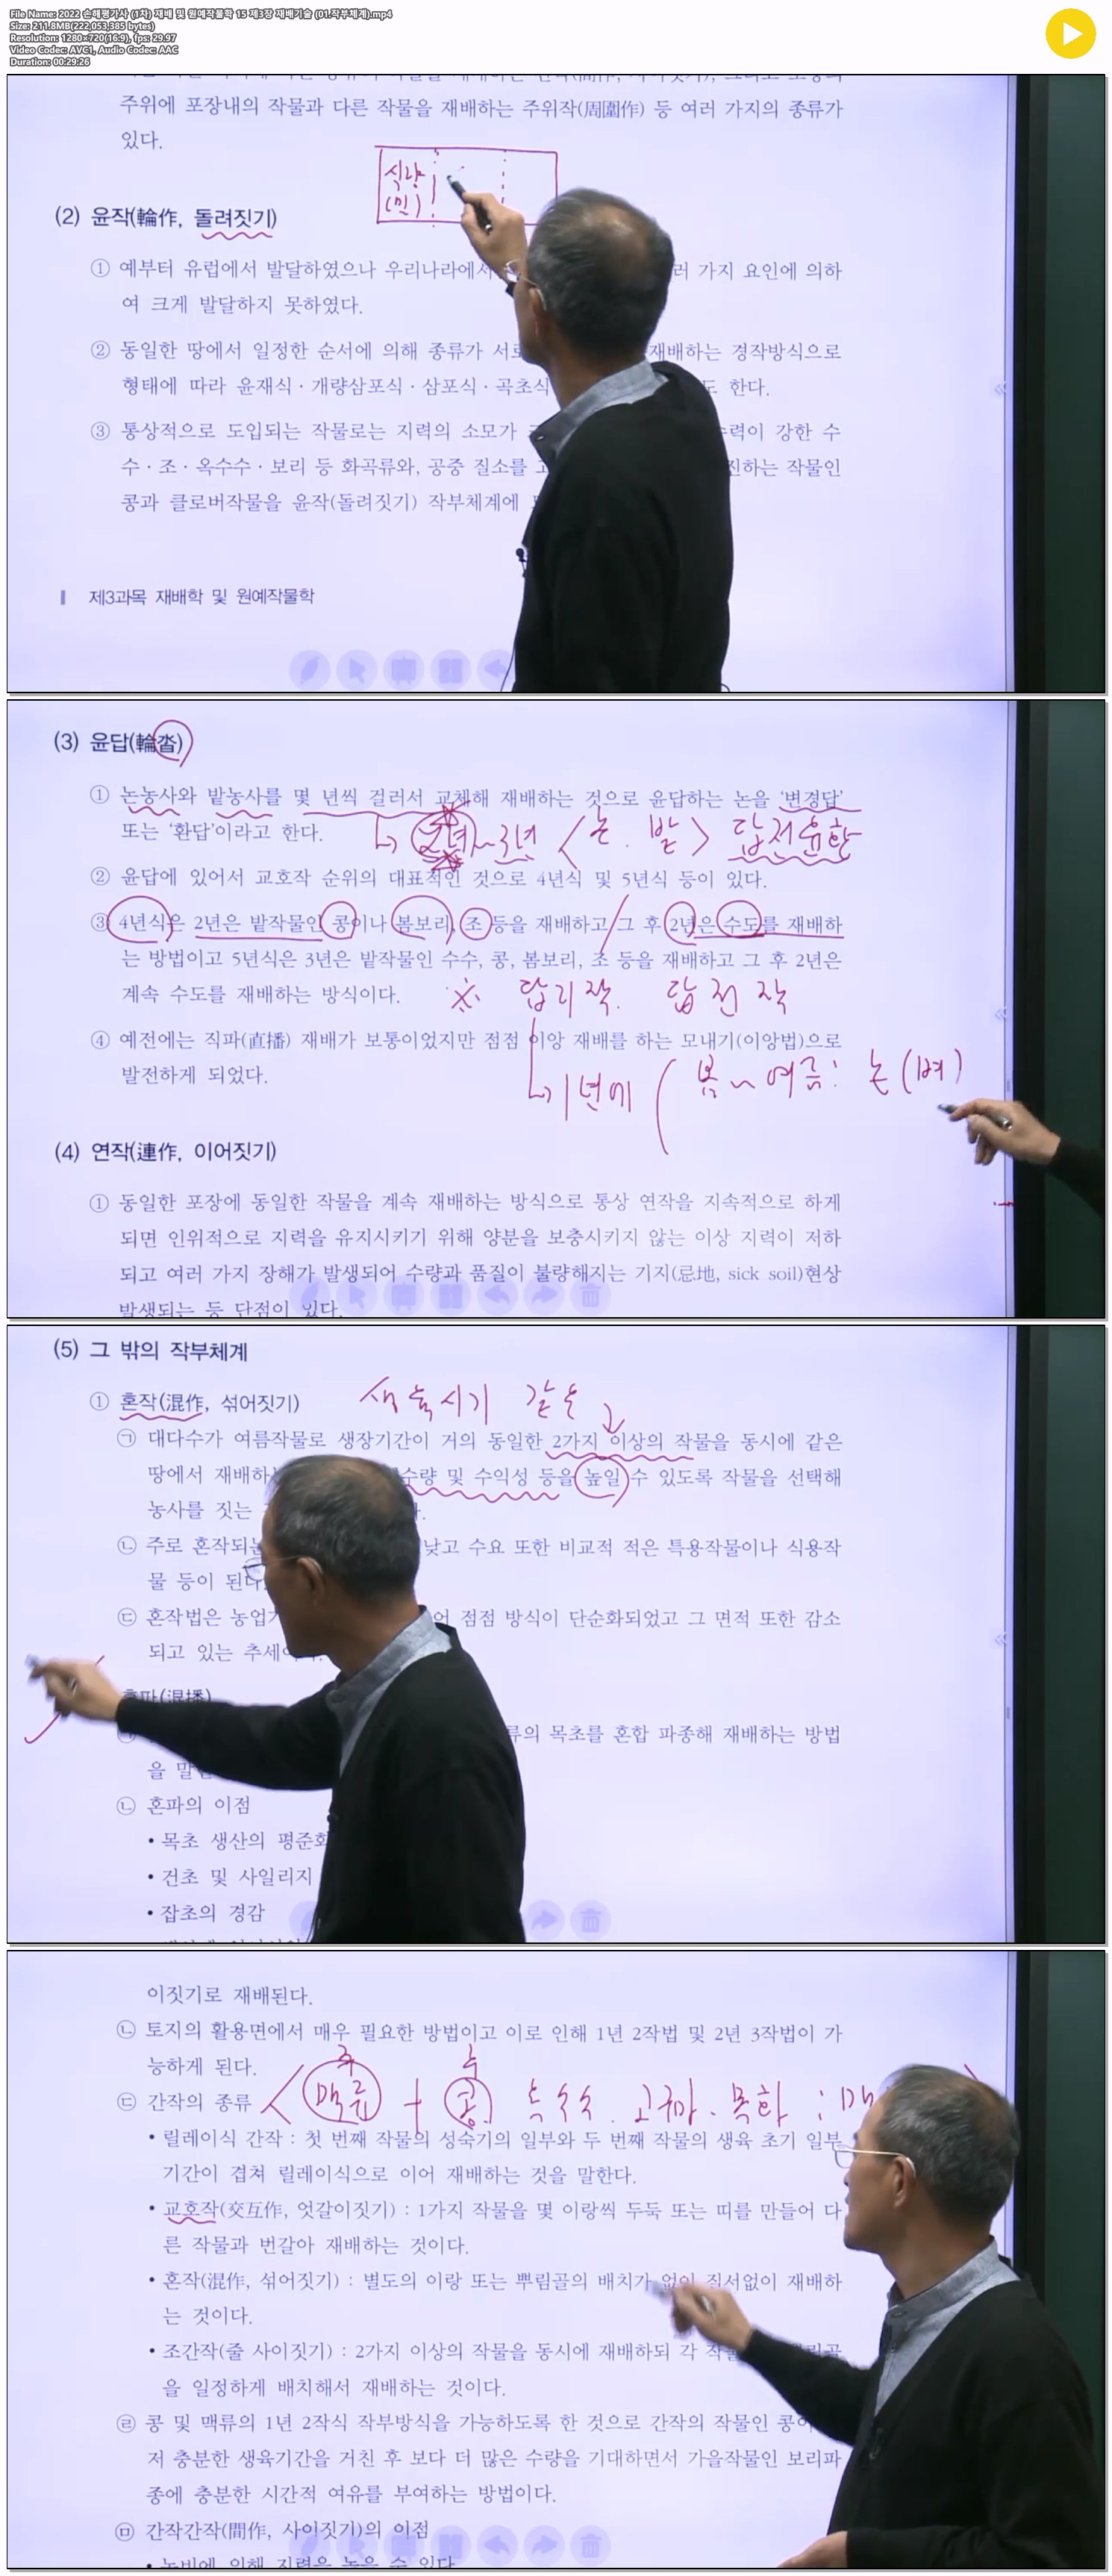 File Name: 2022 손해평가사 (1차) 재배 및 원예작물학 15 제3장 재배기술 (01.작부체계).mp4
Size: 211.8MB(222,053,385 bytes)
Resolution: 1280×720(16:9), fps: 29.97
Video Codec: AVC1, Audio Codec: AAC
Duration: 00:29:26
주위에 포장내의 작물과 다른 작물을 재배하는 주위작(周圍作) 등 여러 가지의 종류가
있다.
식량
(밀)
(2) 윤작(輪作, 돌려짓기)
① 예부터 유럽에서 발달하였으나 우리나라에서 러 가지 요인에 의하
여 크게 발달하지 못하였다.
② 동일한 땅에서 일정한 순서에 의해 종류가 서로 재배하는 경작방식으로
형태에 따라 윤재식·개량삼포식·삼포식·곡초식 도 한다.
③ 통상적으로 도입되는 작물로는 지력의 소모가 력이 강한 수
수·조·옥수수·보리 등 화곡류와, 공중 질소를 고 진하는 작물인
콩과 클로버작물을 윤작(돌려짓기) 작부체계에
제3과목 재배학 및 원예작물학
(3) 윤답(輪畓)
① 논농사와 밭농사를 몇 년씩 걸러서 교체해 재배하는 것으로 윤답하는 논을 '변경답'
또는 '환답'이라고 한다.
2년~3년 <논. 밭> 답전윤환
② 윤답에 있어서 교호작 순위의 대표적인 것으로 4년식 및 5년식 등이 있다.
③ 4년식은 2년은 밭작물인 콩이나 봄보리, 조 등을 재배하고 그 후 2년은 수도를 재배하
는 방법이고 5년식은 3년은 밭작물인 수수, 콩, 봄보리, 조 등을 재배하고 그 후 2년은
계속 수도를 재배하는 방식이다.
※ 답리작. 답전작
④ 예전에는 직파(直播) 재배가 보통이었지만 점점 이앙 재배를 하는 모내기(이앙법)으로
발전하게 되었다.
1년에 ( 봄~여름: 논(벼)
(4) 연작(連作, 이어짓기)
① 동일한 포장에 동일한 작물을 계속 재배하는 방식으로 통상 연작을 지속적으로 하게
되면 인위적으로 지력을 유지시키기 위해 양분을 보충시키지 않는 이상 지력이 저하
되고 여러 가지 장해가 발생되어 수량과 품질이 불량해지는 기지(忌地, sick soil)현상
발생되는 등 단점이 있다.
(5) 그 밖의 작부체계
① 혼작(混作, 섞어짓기)
생육시기 같은
㉠ 대다수가 여름작물로 생장기간이 거의 동일한 2가지 이상의 작물을 동시에 같은
땅에서 재배하 수량 및 수익성 등을 높일 수 있도록 작물을 선택해
농사를 짓는
㉡ 주로 혼작되는 낮고 수요 또한 비교적 적은 특용작물이나 식용작
물 등이 된다.
㉢ 혼작법은 농업 어 점점 방식이 단순화되었고 그 면적 또한 감소
되고 있는 추세
혼파(混播)
류의 목초를 혼합 파종해 재배하는 방법
을 말
㉡ 혼파의 이점
• 목초 생산의 평준화
• 건초 및 사일리지
• 잡초의 경감
이짓기로 재배된다.
㉡ 토지의 활용면에서 매우 필요한 방법이고 이로 인해 1년 2작법 및 2년 3작법이 가
능하게 된다.
㉢ 간작의 종류
맥류 + 콩. 옥수수. 고구마. 목화 :
• 릴레이식 간작 : 첫 번째 작물의 성숙기의 일부와 두 번째 작물의 생육 초기 일부
기간이 겹쳐 릴레이식으로 이어 재배하는 것을 말한다.
• 교호작(交互作, 엇갈이짓기) : 1가지 작물을 몇 이랑씩 두둑 또는 띠를 만들어 다
른 작물과 번갈아 재배하는 것이다.
• 혼작(混作, 섞어짓기) : 별도의 이랑 또는 뿌림골의 배치가 없이 질서없이 재배하
는 것이다.
• 조간작(줄 사이짓기) : 2가지 이상의 작물을 동시에 재배하되 각 작
을 일정하게 배치해서 재배하는 것이다.
㉣ 콩 및 맥류의 1년 2작식 작부방식을 가능하도록 한 것으로 간작의 작물인 콩
저 충분한 생육기간을 거친 후 보다 더 많은 수량을 기대하면서 가을작물인 보리파
종에 충분한 시간적 여유를 부여하는 방법이다.
㉤ 간작간작(間作, 사이짓기)의 이점
• 녹비에 의해 지력을 높을 수 있다